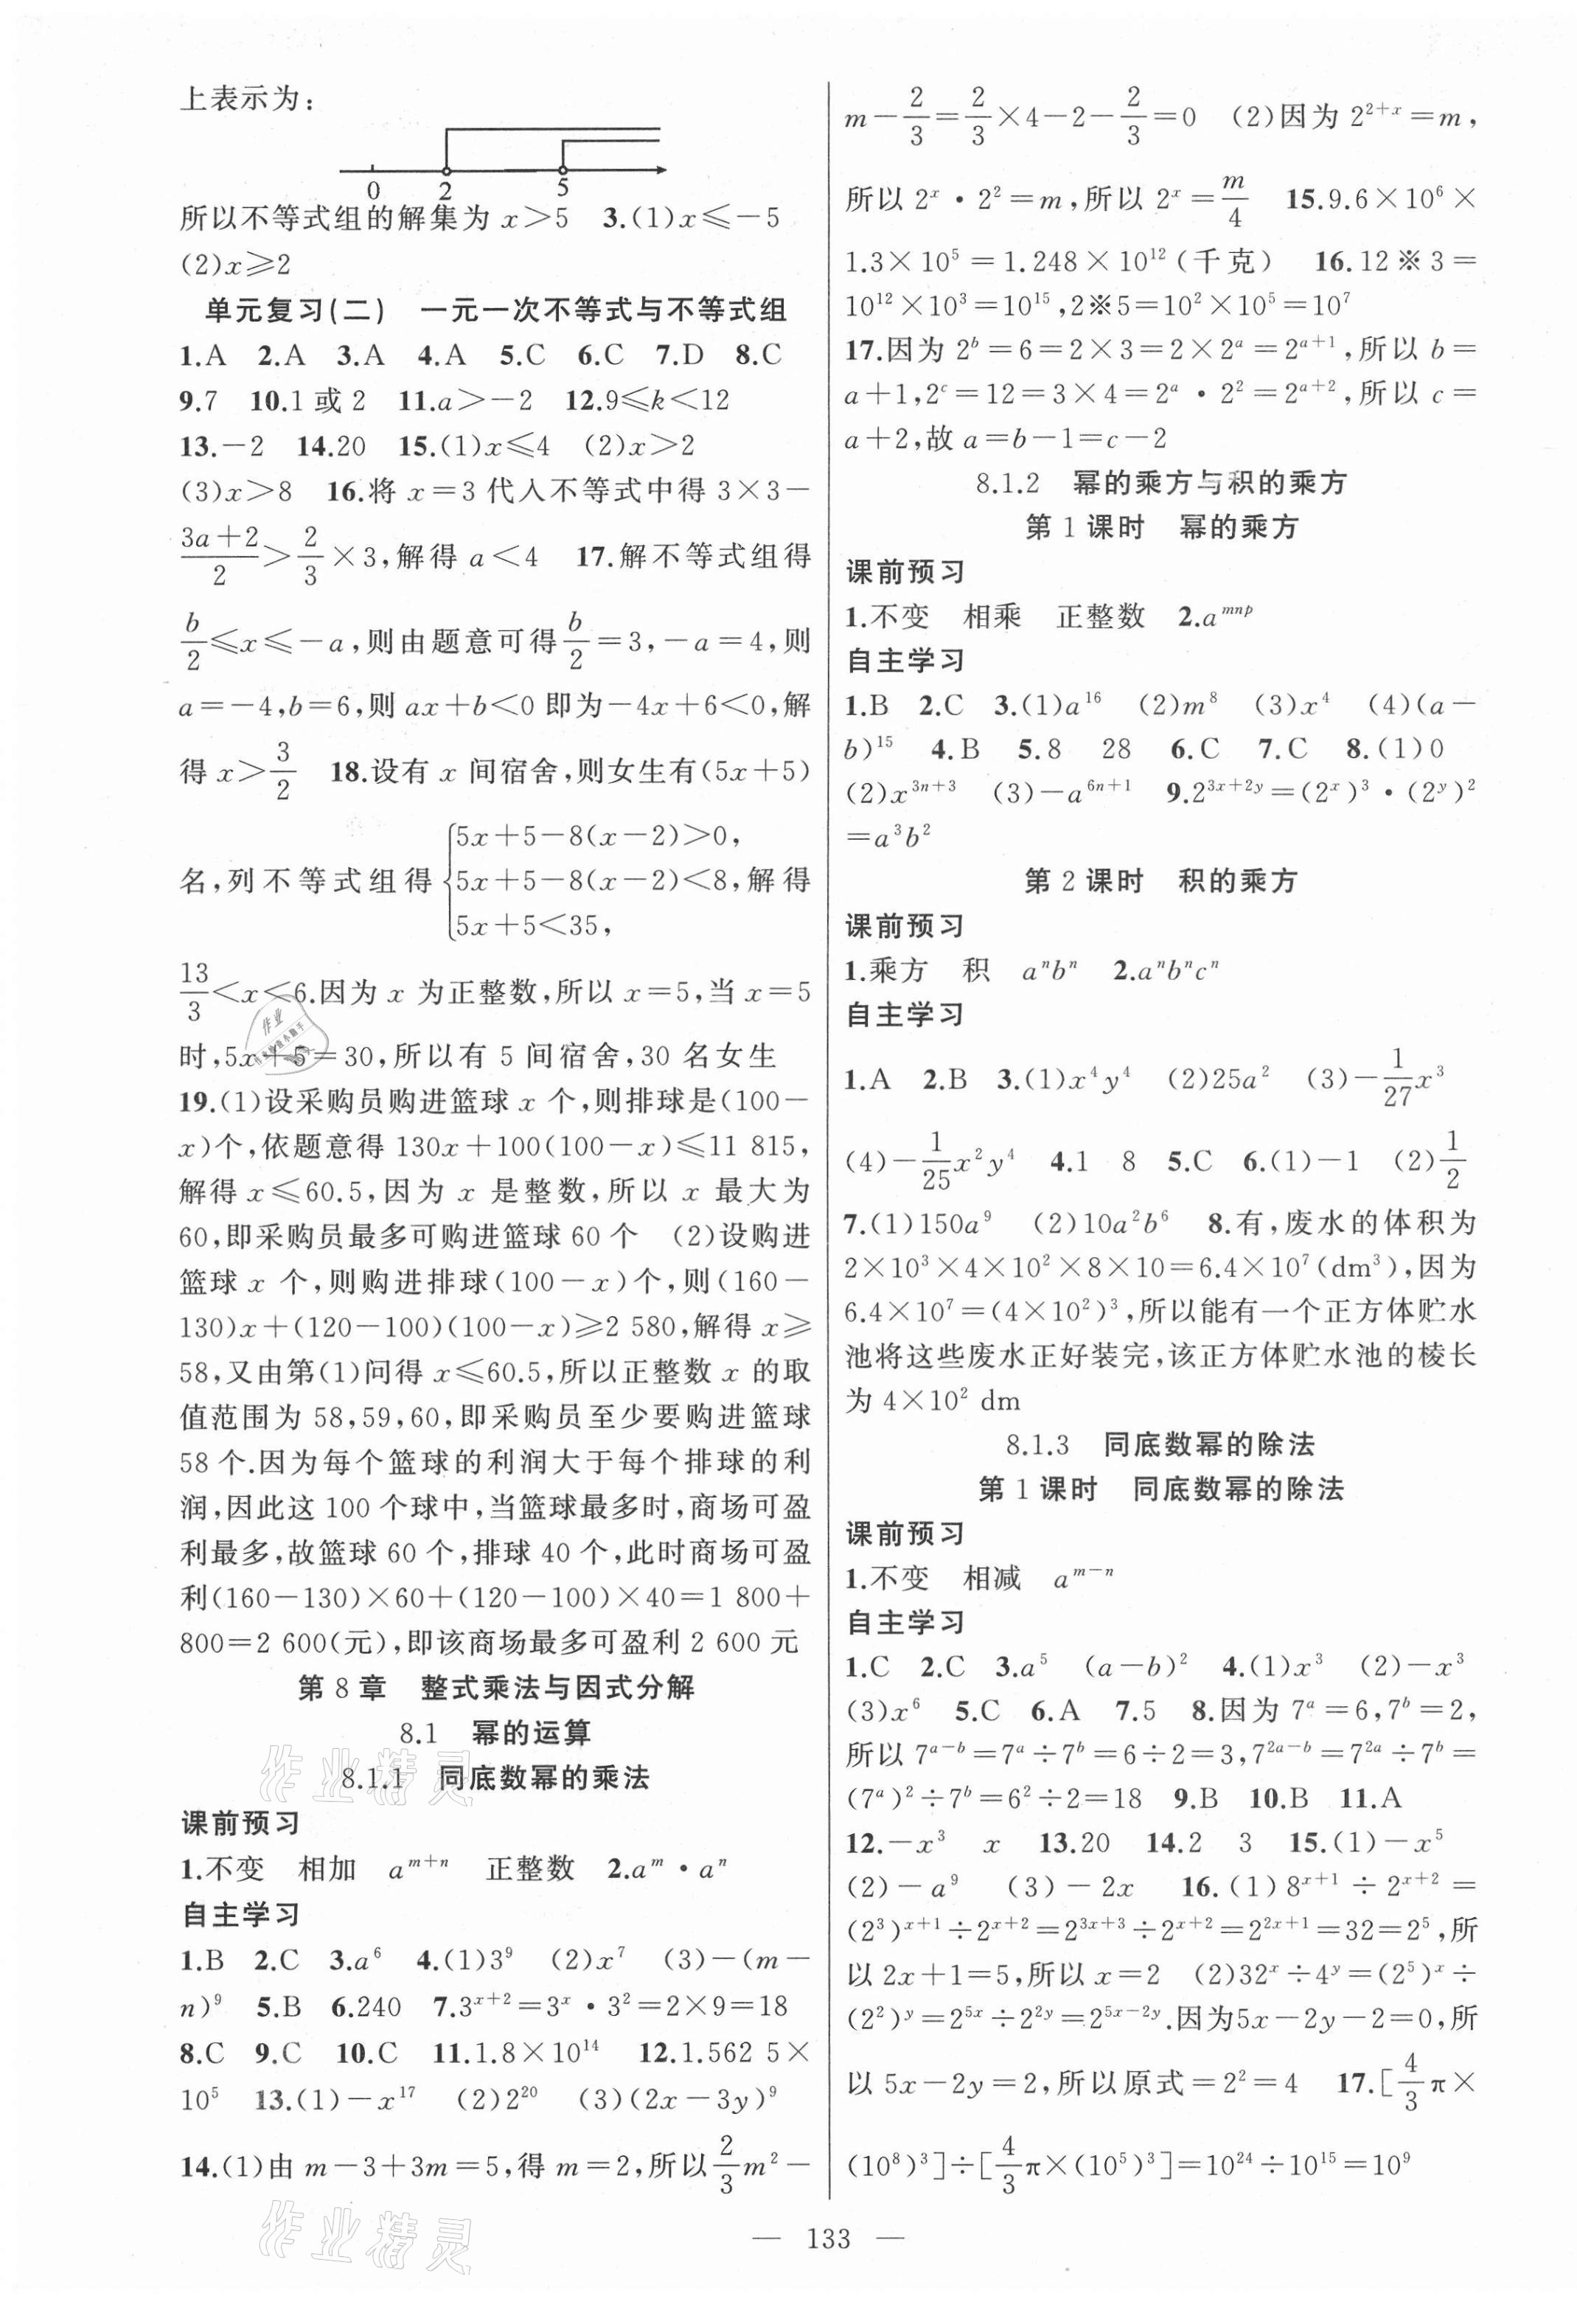 上表示为:
0 2 5
所以不等式组的解集为 x>5 3.(1)x⩽-5
(2)x⩾2
单元复习(二) 一元一次不等式与不等式组
1.A 2.A 3.A 4.A 5.C 6.C 7.D 8.C
9.7 10.1 或 2 11.a>-2 12.9⩽k<12
13.-2 14.20 15.(1)x⩽4 (2)x>2
(3)x>8 16.将 x=3 代入不等式中得 3×3-
(3a+2)/2>2/3×3,解得 a<4 17.解不等式组得
b/2⩽x⩽-a,则由题意可得b/2=3,-a=4,则
a=-4,b=6,则 ax+b<0 即为-4x+6<0,解
得 x>3/2 18.设有 x 间宿舍,则女生有(5x+5)
名,列不等式组得{5x+5-8(x-2)>0, 5x+5-8(x-2)<8, 5x+5<35, 解得
13/3<x<6.因为 x 为正整数,所以 x=5,当 x=5
时,5x+5=30,所以有 5 间宿舍,30 名女生
19.(1)设采购员购进篮球 x 个,则排球是(100-
x)个,依题意得 130x+100(100-x)⩽11 815,
解得 x⩽60.5,因为 x 是整数,所以 x 最大为
60,即采购员最多可购进篮球 60 个 (2)设购进
篮球 x 个,则购进排球(100-x)个,则(160-
130)x+(120-100)(100-x)⩾2 580,解得 x⩾
58,又由第(1)问得 x⩽60.5,所以正整数 x 的取
值范围为 58,59,60,即采购员至少要购进篮球
58 个.因为每个篮球的利润大于每个排球的利
润,因此这 100 个球中,当篮球最多时,商场可盈
利最多,故篮球 60 个,排球 40 个,此时商场可盈
利(160-130)×60+(120-100)×40=1 800+
800=2 600(元),即该商场最多可盈利 2 600 元
第 8 章 整式乘法与因式分解
8.1 幂的运算
8.1.1 同底数幂的乘法
课前预习
1.不变 相加 a^(m+n) 正整数 2.a^m·a^n
自主学习
1.B 2.C 3.a^6 4.(1)3^9 (2)x^7 (3)-(m-
n)^9 5.B 6.240 7.3^(x+2)=3^x·3^2=2×9=18
8.C 9.C 10.C 11.1.8×10^14 12.1.562 5×
10^5 13.(1)-x^17 (2)2^20 (3)(2x-3y)^9
14.(1)由 m-3+3m=5,得 m=2,所以2/3m^2-
m-2/3=2/3×4-2-2/3=0 (2)因为 2^(2+x)=m,
所以 2^x·2^2=m,所以 2^x=m/4 15.9.6×10^6×
1.3×10^5=1.248×10^12(千克) 16.12※3=
10^12×10^3=10^15,2※5=10^2×10^5=10^7
17.因为 2^b=6=2×3=2×2^a=2^(a+1),所以 b=
a+1,2^c=12=3×4=2^a·2^2=2^(a+2),所以 c=
a+2,故 a=b-1=c-2
8.1.2 幂的乘方与积的乘方
第 1 课时 幂的乘方
课前预习
1.不变 相乘 正整数 2.a^(mnp)
自主学习
1.B 2.C 3.(1)a^16 (2)m^8 (3)x^4 (4)(a-
b)^15 4.B 5.8 28 6.C 7.C 8.(1)0
(2)x^(3n+3) (3)-a^(6n+1) 9.2^(3x+2y)=(2^x)^3·(2^y)^2
=a^3b^2
第 2 课时 积的乘方
课前预习
1.乘方 积 a^nb^n 2.a^nb^nc^n
自主学习
1.A 2.B 3.(1)x^4y^4 (2)25a^2 (3)-1/27x^3
(4)-1/25x^2y^4 4.1 8 5.C 6.(1)-1 (2)1/2
7.(1)150a^9 (2)10a^2b^6 8.有,废水的体积为
2×10^3×4×10^2×8×10=6.4×10^7(dm^3),因为
6.4×10^7=(4×10^2)^3,所以能有一个正方体贮水
池将这些废水正好装完,该正方体贮水池的棱长
为 4×10^2 dm
8.1.3 同底数幂的除法
第 1 课时 同底数幂的除法
课前预习
1.不变 相减 a^(m-n)
自主学习
1.C 2.C 3.a^5 (a-b)^2 4.(1)x^3 (2)-x^3
(3)x^6 5.C 6.A 7.5 8.因为 7^a=6,7^b=2,
所以 7^(a-b)=7^a÷7^b=6÷2=3,7^(2a-b)=7^(2a)÷7^b=
(7^a)^2÷7^b=6^2÷2=18 9.B 10.B 11.A
12.-x^3 x 13.20 14.2 3 15.(1)-x^5
(2)-a^9 (3)-2x 16.(1)8^(x+1)÷2^(x+2)=
(2^3)^(x+1)÷2^(x+2)=2^(3x+3)÷2^(x+2)=2^(2x+1)=32=2^5,所
以 2x+1=5,所以 x=2 (2)32^x÷4^y=(2^5)^x÷
(2^2)^y=2^(5x)÷2^(2y)=2^(5x-2y).因为5x-2y-2=0,所
以 5x-2y=2,所以原式=2^2=4 17.[4/3π×
(10^8)^3]÷[4/3π×(10^5)^3]=10^24÷10^15=10^9
— 133 —
作业精灵
作业精灵